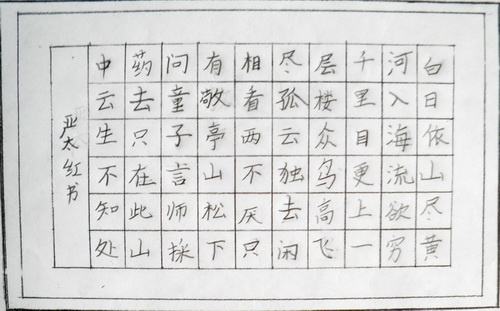 白日依山尽黄
河入海流欲穷
千里目更上一
层楼众鸟高飞
尽孤云独去闲
相看两不厌只
有敬亭山松下
问童子言师採
药去只在此山
中云生不知处
严太红书